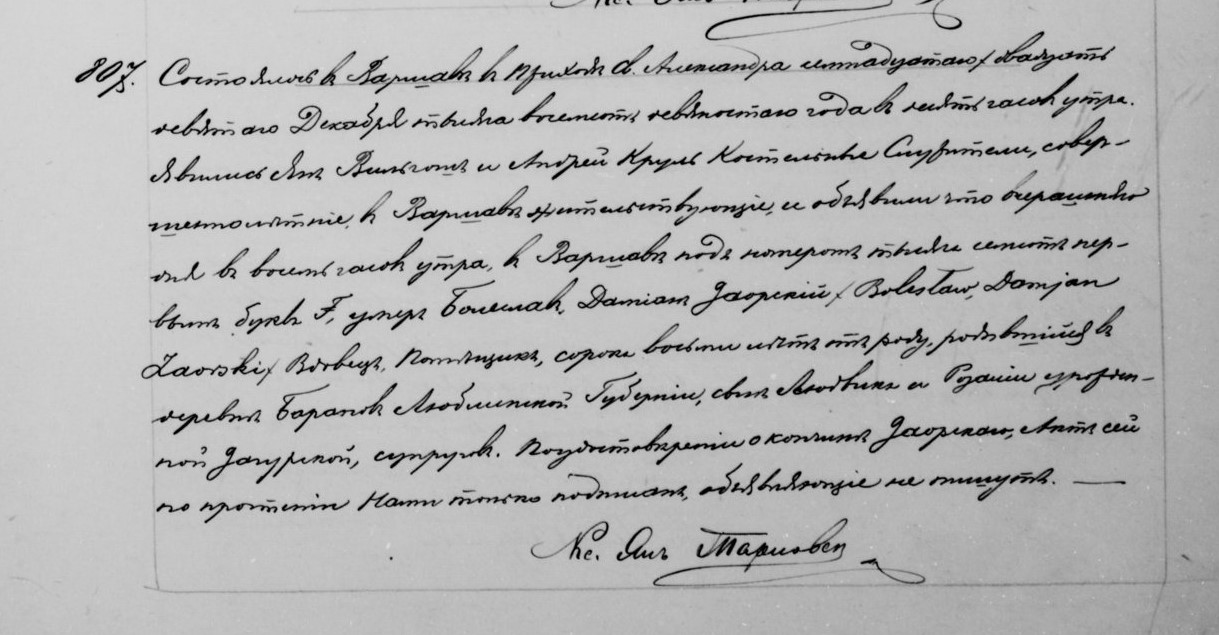 Кс. Янъ
807. Состоялось въ Варшавѣ въ приходѣ Св. Александра семнадцатаго / двадцать
девятаго Декабря тысяча восемьсотъ девяностаго года въ десять часовъ утра.
Явились Янъ и Андрей Круль Костельные Служители, совер-
шеннолѣтніе, въ Варшавѣ жительствующіе, и объявили что вчерашняго
дня въ восемь часовъ утра, въ Варшавѣ подъ номеромъ тысяча семьсотъ пер-
вымъ буквъ F, умеръ Болеславъ, Damianъ Заорскій / Bolesław, Damjan
Zaorski / Вдовецъ, Помѣщикъ, сорока восьми лѣтъ отъ роду, родившійся въ
деревнѣ Барановъ Люблинской Губерніи, сынъ Людвика и Розаліи урожден-
ной Загурской, супруговъ. По удостовѣреніи о кончинѣ Заорскаго, Актъ сей
по прочтеніи Нами только подписанъ, объявляющіе не пишутъ. —
Кс. Янъ